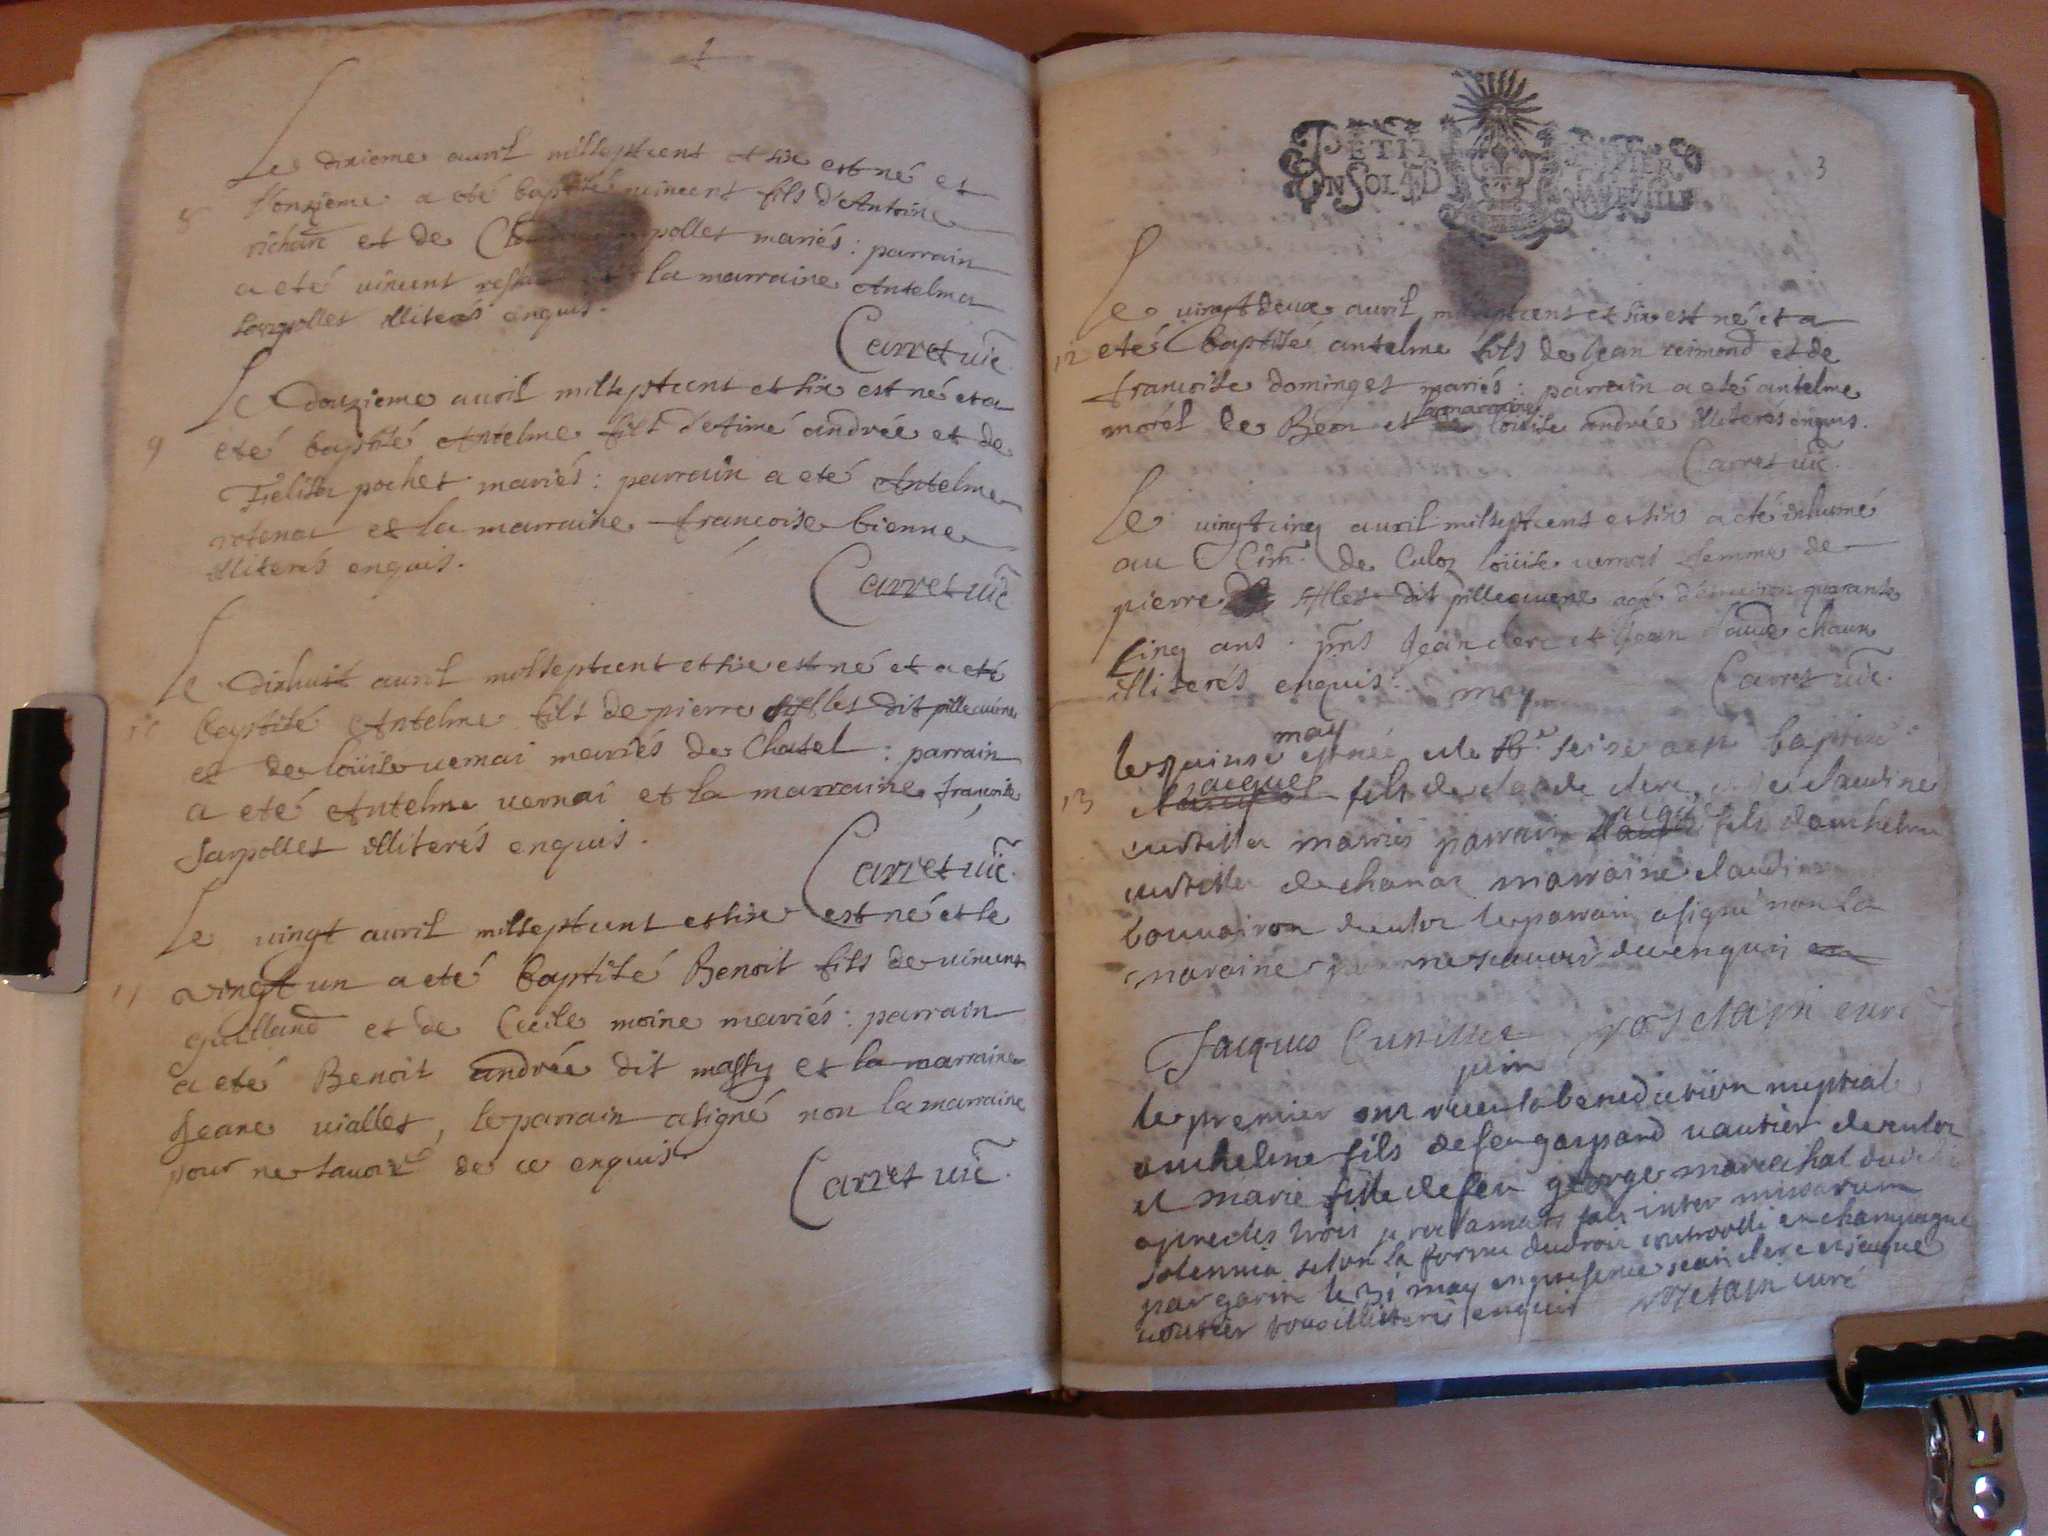 Le dixieme auril milseptcent et six est né et
8 l'onzieme a eté baptisé uincent fils d'Antoine
richard et de polles mariés : parrain
a eté uincent la marraine Antelma
illiterés enquis.
Carret uic.
Le douzieme auril milseptcent et six est né et a
9 eté baptisé Antelme fils d'Aimé andrée et de
Felise pochet mariés : parrain a eté Antelme
et la marraine francoise bienne
illiterés enquis.
Carret uic
Le dixhuit auril milseptcent et six est né et a eté
10 baptisé Antelme fils de pierre dit
et de loüise uernai mariés de Chatel : parrain
a eté Antelme uernai et la marraine francoise
Sarpollet illiterés enquis.
Carret uic.
Le uingt auril milseptcent et six est né et le
11 uingt un a eté baptisé Benoit fils de uincent
guilland et de Cecile moine mariés : parrain
a eté Benoit andrée dit massy et la marraine
Jeane uiallet, le parrain a signé non la marraine
pour ne sauoir de ce enquis
Carret uic.
PETIT PAPIER
EN SOL 4 D LA FEVILLE
3
Le uingtdeux auril milseptcent et six est né et a
12 eté baptisé antelme fils de Jean reimond et de
francoise dominget mariés : parrain a eté antelme
morél de Beon et la marraine louise andrée illiterés enquis.
Carret uic.
Le uingtcinq auril milseptcent et six a eté inhumé
au Cim. de Culoz loüise uernai femme de
pierre dit agé d'enuiron quarante
cinq ans . pnts Jean clerc et Jean claude
illiterés enquis.
Carret uic.
may
may
le quinse est née et le seise a est baptisé
Jacques
13 fils de claude clerc, et de claudine
mariés parrain fils d'anthelme
de chanaz marraine claudine
de culoz le parrain a signé non la
maraine ne scauoir de ce enquis
Jacques curé
juin
le premier ont receu la benediction nuptial
anthelme fils de feu gaspard uautier de culoz
et marie fille de feu george marechal dudit
apres les trois proclamats fais inter missarum
solemnia selon la forme du droit controollé en champagne
par garin le 31 may en presence jean clerc et jaque
uautier tous illiterés enquis curé